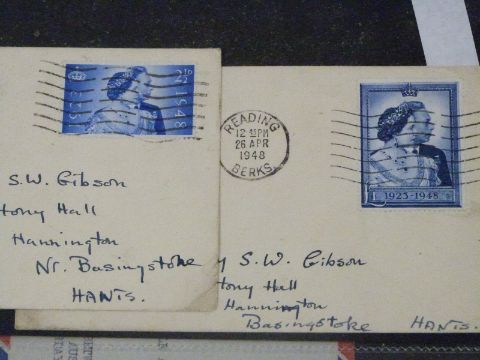 1923
2½D
1948
S.W. Gibson
tony Hall
Hannington
Nr. Basingstoke
HANTS.
READING
12 45 PM
26 APR
1948
BERKS.
£1
1923-1948
y S.W. Gibson
tony Hall
Hannington
Basingstoke HANTS.